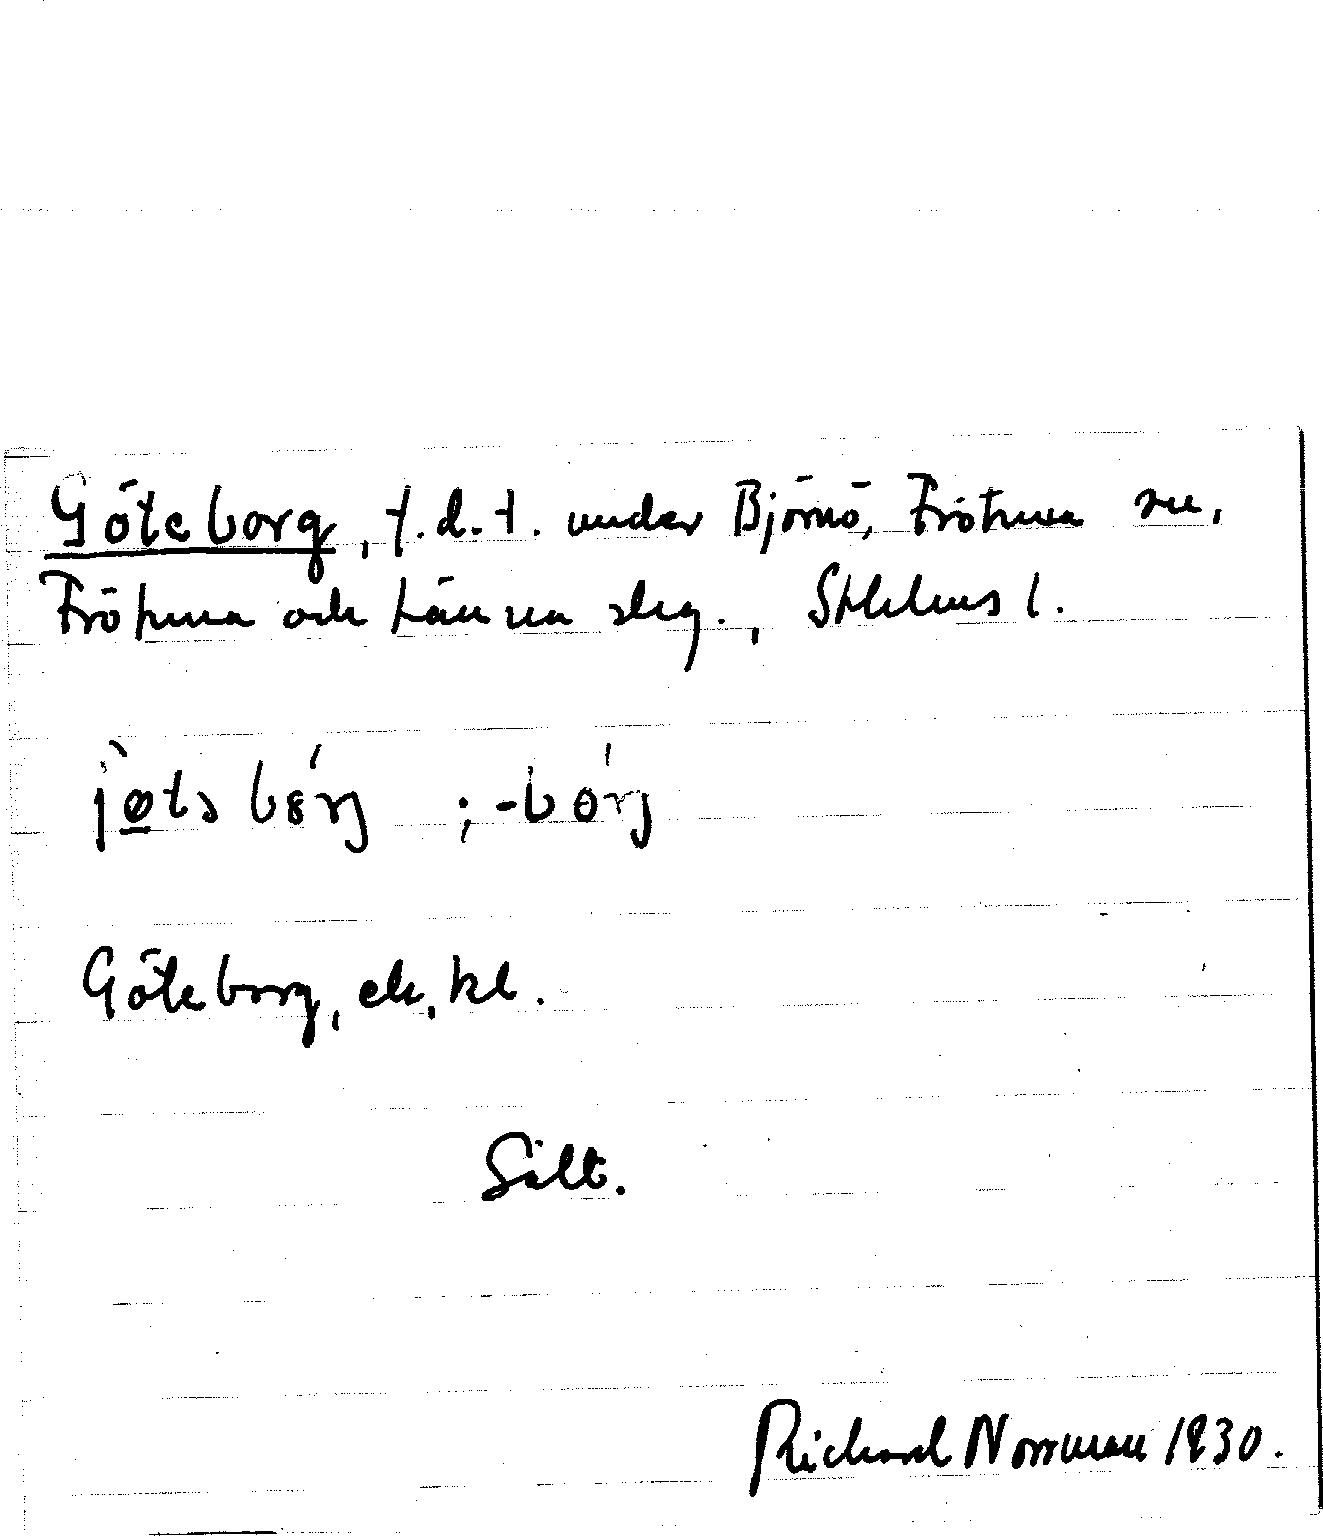 Göteborg, f.d.t. under Björnö, Frötuna sn,
Frötuna och Länna skg., Sthlms l.
jøtə bórj ; -bórj
Göteborg, ek. kl.
Sält.
Richard Norrman 1930.